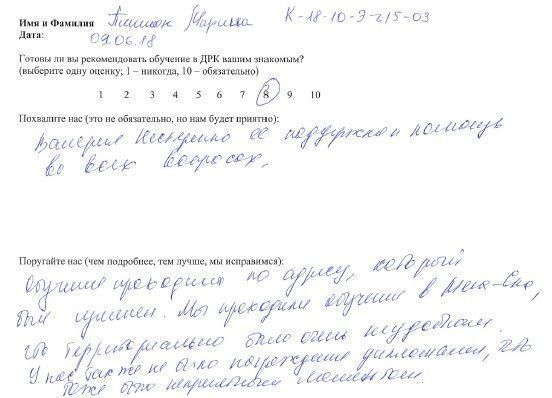 Имя и Фамилия Марина К-18-10-Э-215-03
Дата: 09.06.18
Готовы ли вы рекомендовать обучение в ДРК вашим знакомым?
(выберите одну оценку; 1 – никогда, 10 – обязательно)
1 2 3 4 5 6 7 8 9 10
Похвалите нас (это не обязательно, но нам будет приятно):
Валерия Нестеренко ее поддержка и помощь
во всех вопросах.
Поругайте нас (чем подробнее, тем лучше, мы исправимся):
Обучение проходило по адресу, который
был. Мы проходили обучение в
что территориально было очень неудобным.
У нас также не было награждения дипломами, что
тоже было неприятным моментом.